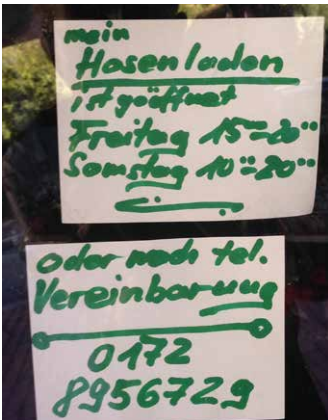 mein
Hosenladen
ist geöffnet
Freitag 15⁰⁰-20⁰⁰
Samstag 10⁰⁰-20⁰⁰
oder nach tel.
Vereinbarung
0172
8956729